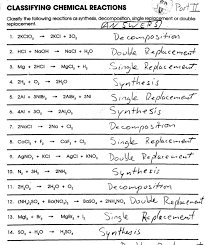 Part II
CLASSIFYING CHEMICAL REACTIONS
ANSWERS
Classify the following reactions as synthesis, decomposition, single replacement or double
replacement.
1. 2KClO₃ → 2KCl + 3O₂ Decomposition
2. HCl + NaOH → NaCl + H₂O Double Replacement
3. Mg + 2HCl → MgCl₂ + H₂ Single Replacement
4. 2H₂ + O₂ → 2H₂O Synthesis
5. 2Al + 3NiBr₂ → 2AlBr₃ + 3Ni Single Replacement
6. 4Al + 3O₂ → 2Al₂O₃ Synthesis
7. 2NaCl → 2Na + Cl₂ Decomposition
8. CaCl₂ + F₂ → CaF₂ + Cl₂ Single Replacement
9. AgNO₃ + KCl → AgCl + KNO₃ Double Replacement
10. N₂ + 3H₂ → 2NH₃ Synthesis
11. 2H₂O₂ → 2H₂O + O₂ Decomposition
12. (NH₄)₂SO₄ + Ba(NO₃)₂ → BaSO₄ + 2NH₄NO₃ Double Replacement
13. MgI₂ + Br₂ → MgBr₂ + I₂ Single Replacement
14. SO₃ + H₂O → H₂SO₄ Synthesis